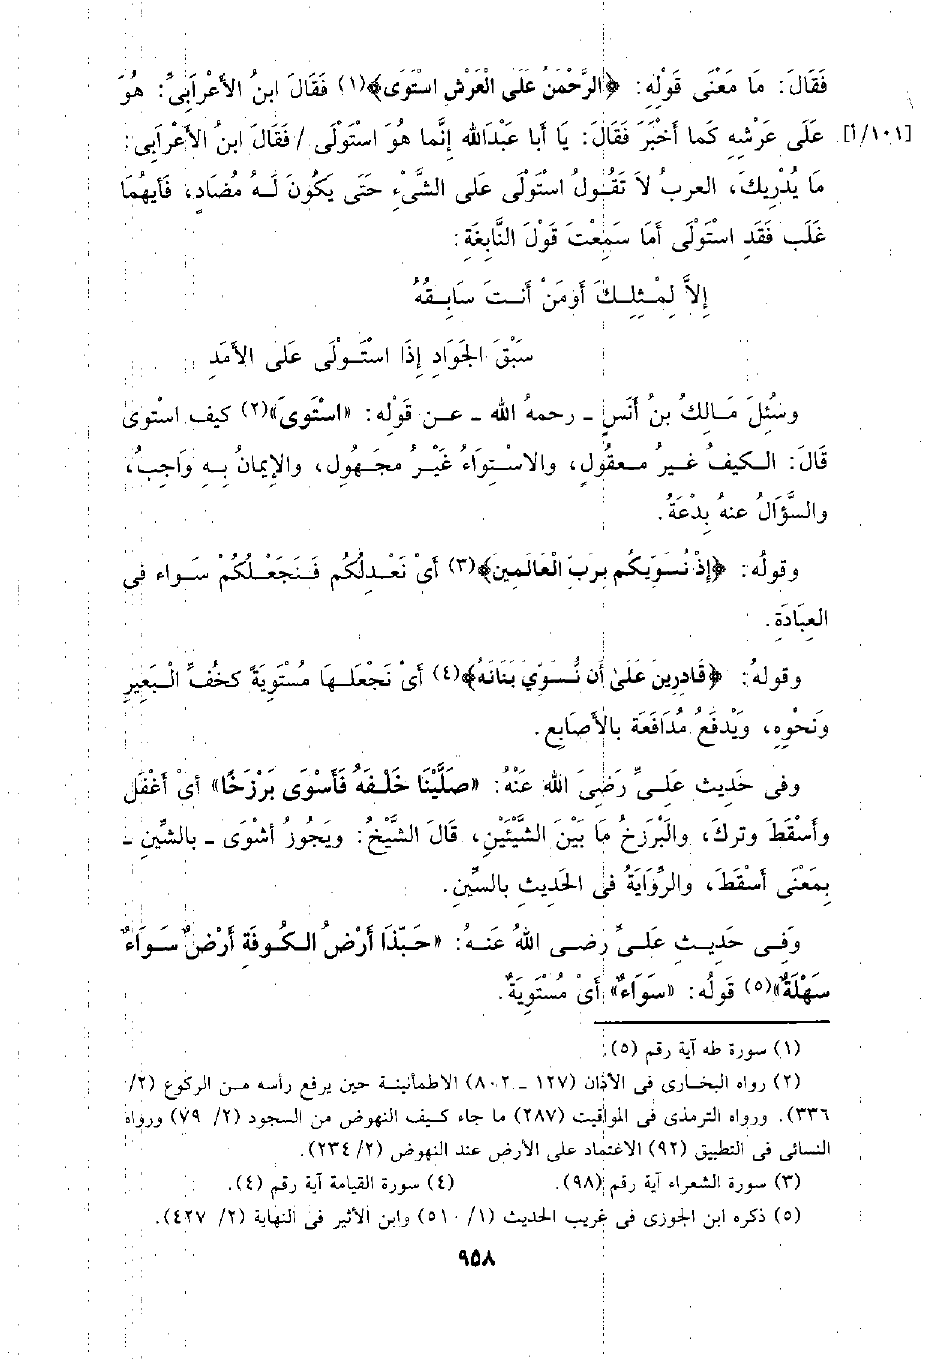 فَقَالَ: مَا مَعْنَى قَوْلِهِ: ﴿الرَّحْمَنُ عَلَى الْعَرْشِ اسْتَوَى﴾(١) فَقَالَ ابنُ الأَعْرَابِىِّ: هُوَ
[١٠١/أ] عَلَى عَرْشِهِ كَما أَخْبَرَ فَقَالَ: يَا أَبا عَبْدَالله إِنَّما هُوَ اسْتَوْلَى / فَقَالَ ابنُ الأَعْرَابِى:
مَا يُدْرِيكَ، العربُ لاَ تَقُولُ اسْتَوْلَى عَلَى الشَّىْءِ حَتَى يَكُونَ لَهُ مُضَاد، فَأَيهُمَا
غَلَب فَقَد اسْتَوْلَى أَمَا سَمِعْتَ قَوْلَ النَّابِغَةِ:
إِلاَّ لِمْثِلِكَ أَومَنْ أَنتَ سَابِقُهُ
سَبْقَ الجَوَادِ إِذَا اسْتَوْلَى عَلى الأَمَدِ
وسُئِلَ مَالكُ بنُ أَنَسٍ ـ رحمهُ الله ـ عن قَوْلِه: «اسْتَوىَ»(٢) كيف استوى
قَالَ: الكيفُ غيرُ معقولٍ، والاسْتِواءُ غَيْرُ مجَهُولٍ، والإِيمانُ بِهِ وَاجبُ،
والسَّؤَالُ عنهُ بِدْعَةُ.
وقولُه: ﴿إِذْ نُسَوِّيكُم بِرَبِّ الْعَالَمِين﴾(٣) أَىْ نَعْدِلُكُم فَنَجَعْلكُمْ سَواء فى
العِبَادَةِ.
وقولهُ: ﴿قَادِرِينَ عَلَىٰ أَن نُّسَوِّيَ بَنَانَهُ﴾(٤) أَىْ نَجْعَلهَا مُسْتَوِيَةً كخُفِّ الْبَعِيرِ
وَنَحْوِهِ، وَيْدفَعُ مُدَافَعَة بالأَصَابِعِ.
وفى حَديث عَلىِّ رَضِىَ الله عَنْهُ: «صَلَّيْنَا خَلْفَهُ فَأَسْوَى بَرْزَخًا» أىْ أَغْفَل
وأَسْقَطَ وتركَ، والبَرْزَخُ مَا بَيْنَ الشَّيْئَيْنِ، قَالَ الشَّيْخُ: ويَجُوزُ أَشْوَى ـ بالشِّينِ ـ
بِمَعْنَى أَسْقَطَ، والرِّوَايَةُ فى الحَدِيثِ بالسِّينِ.
وَفى حَدِيثِ عَلىِّ رضى اللهُ عَنهُ: «حَبَّذَا أَرْضُ الكُوفَةِ أَرْضٌ سَوَاءٌ
سَهْلَةٌ»(٥) قَولُه: «سَوَاءٌ» أَىْ مُسْتَوِيَةٌ.
(١) سورة طه آية رقم (٥).
(٢) رواه البخارى فى الأذان (١٢٧ ـ ٨٠٢) الاطمأنينة حين يرفع رأسه من الركوع (٢/
٣٣٦). ورواه الترمذى فى المواقيت (٢٨٧) ما جاء كيف النهوض من السجود (٢/ ٧٩) ورواه
النسائى فى التطبيق (٩٢) الاعتماد على الأرض عند النهوض (٢/ ٢٣٤).
(٣) سورة الشعراء آية رقم (٩٨). (٤) سورة القيامة آية رقم (٤).
(٥) ذكره ابن الجوزى فى غريب الحديث (١/ ٥١٠) وابن الأثير فى النهاية (٢/ ٤٢٧).
٩٥٨